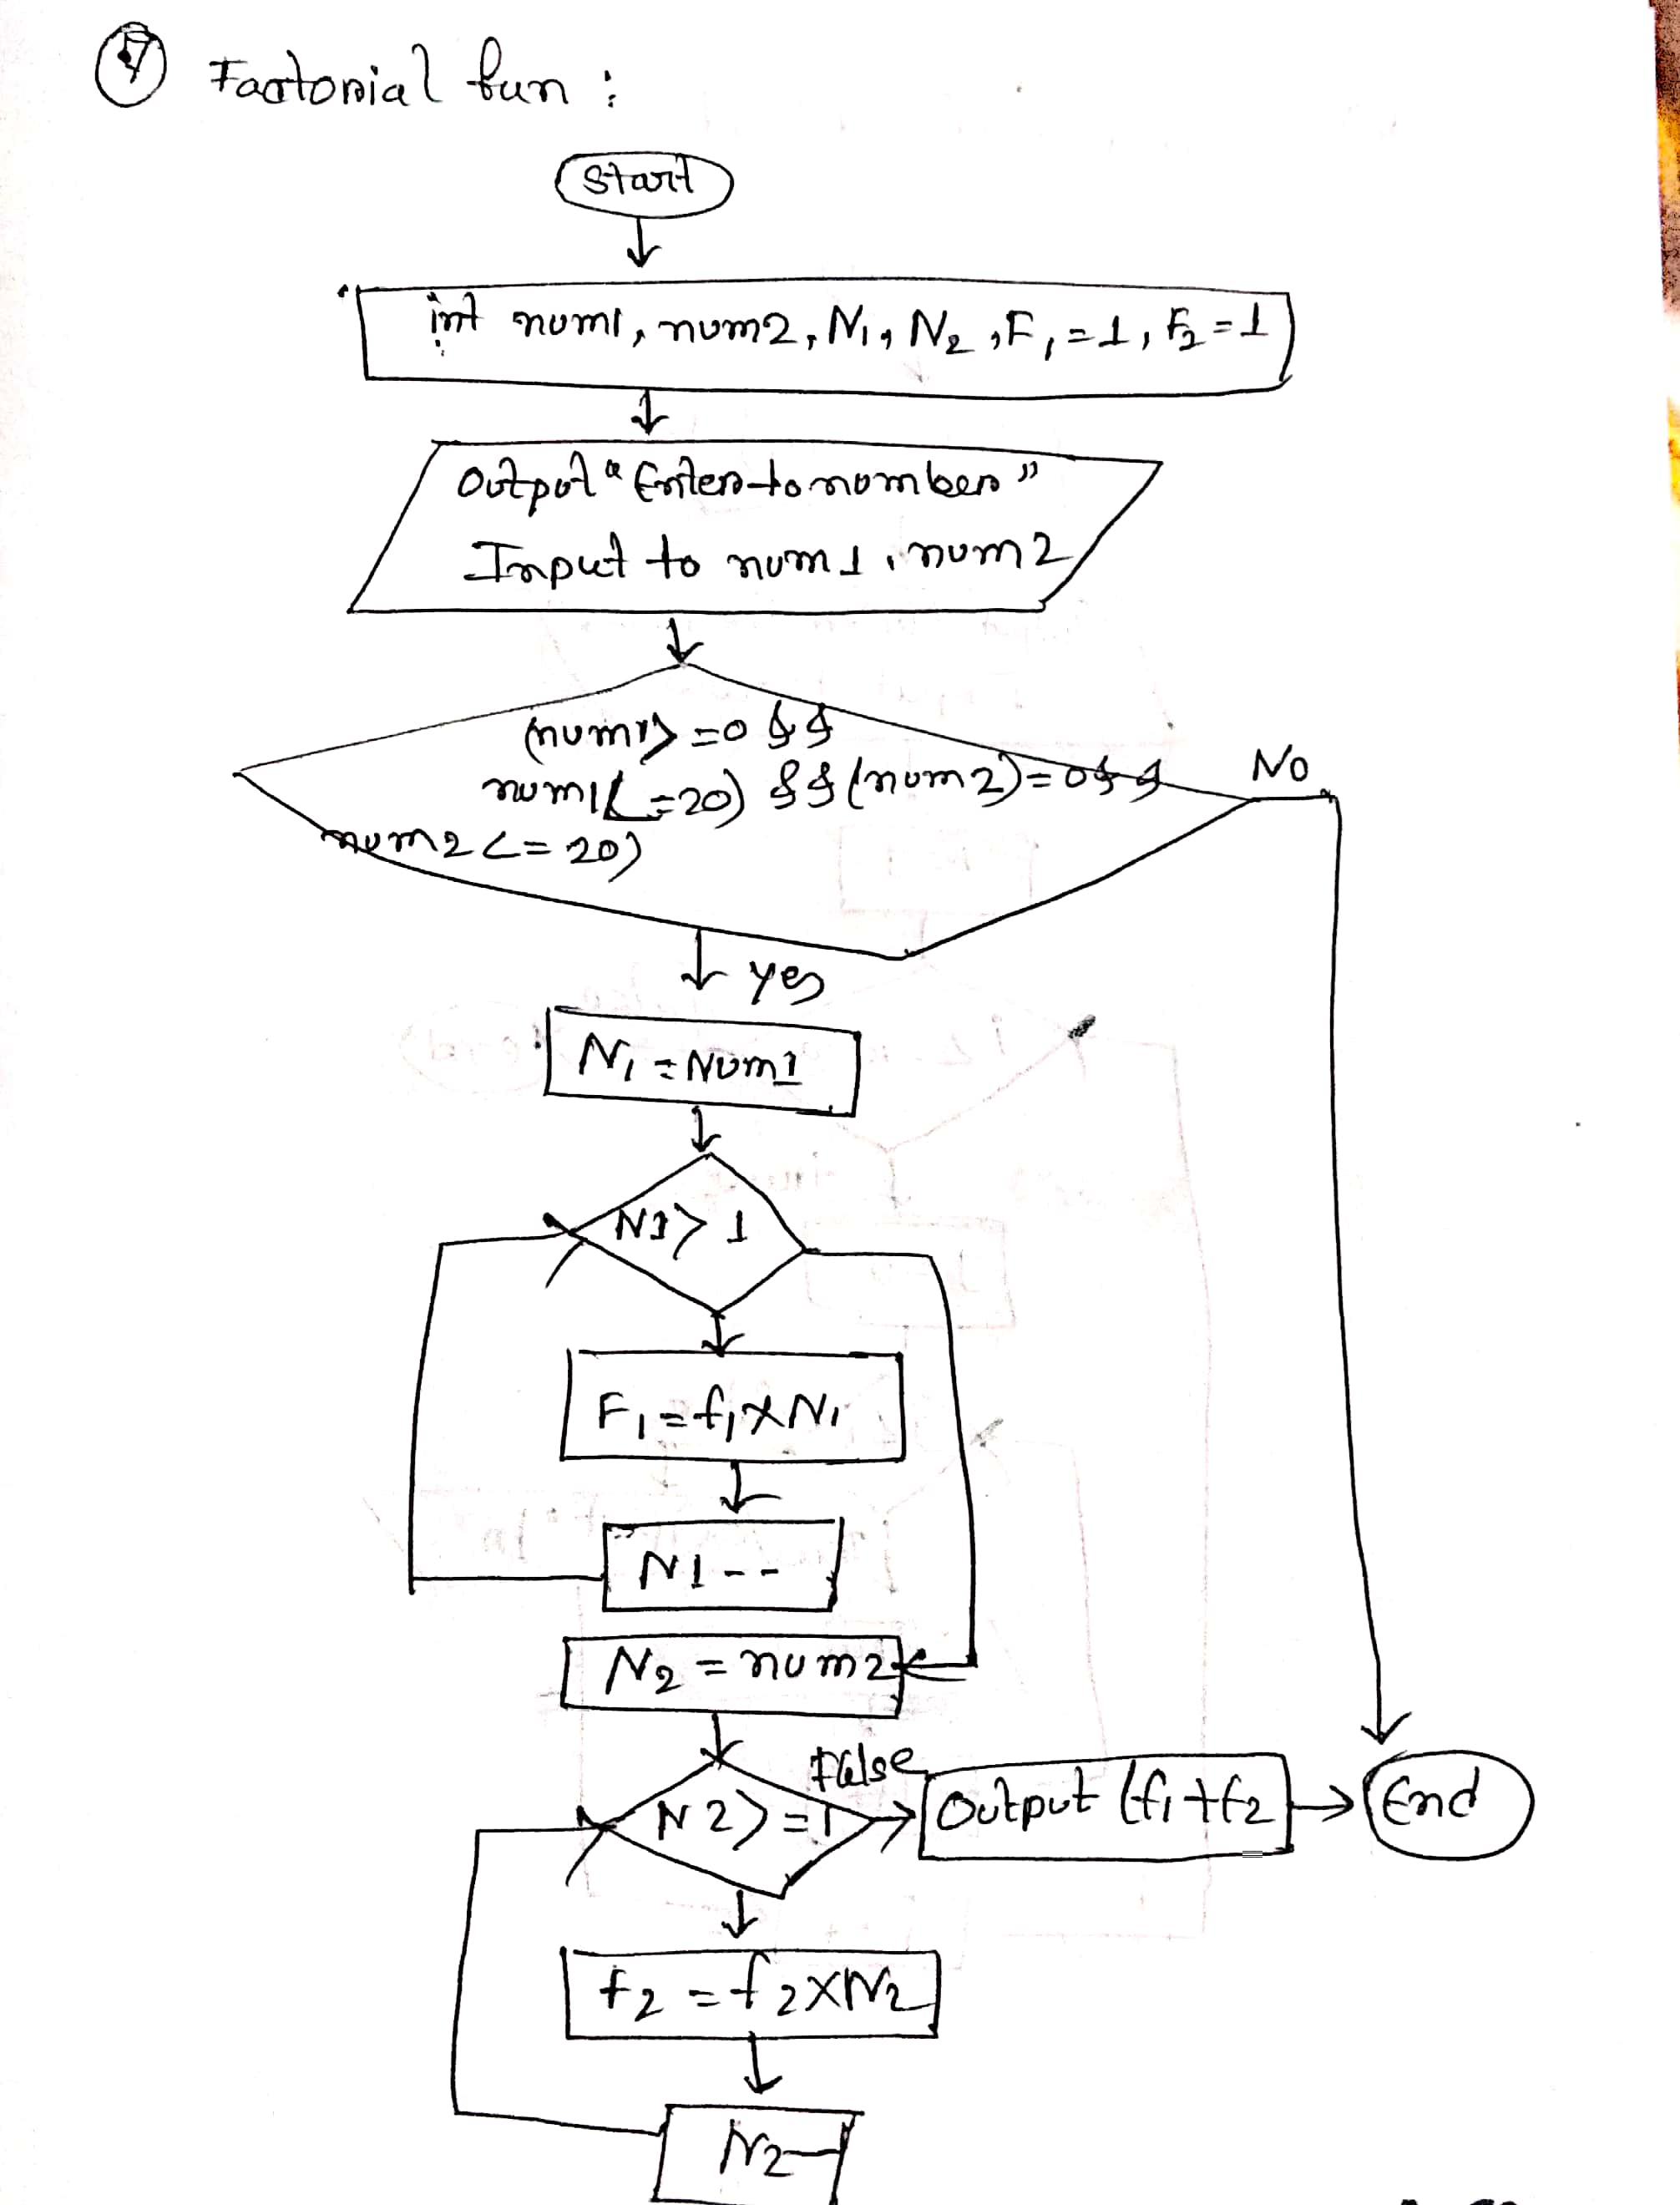 Factorial fun :
Start
int num1, num2, N1, N2, F1 = 1, F2 = 1
Output "Enter to number"
Input to num1, num2
(num1> =0 &&
num1<=20) && (num2>=0 &&
num2 <= 20)
No
yes
N1 = Num1
N1> 1
F1 = f1 x N1
N1--
N2 = num2
False
N2>=1
Output (f1+f2
End
f2 = f2 x N2
N2--